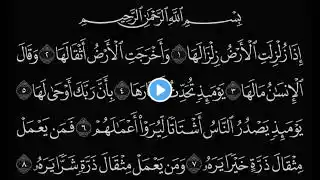 بِسْمِ ٱللَّهِ ٱلرَّحْمَٰنِ ٱلرَّحِيمِ
إِذَا زُلْزِلَتِ ٱلْأَرْضُ زِلْزَالَهَا ١ وَأَخْرَجَتِ ٱلْأَرْضُ أَثْقَالَهَا ٢ وَقَالَ
ٱلْإِنسَٰنُ مَا لَهَا ٣ يَوْمَئِذٍ تُحَدِّثُ ٤ بِأَنَّ رَبَّكَ أَوْحَىٰ لَهَا ٥
يَوْمَئِذٍ يَصْدُرُ ٱلنَّاسُ أَشْتَاتًا لِّيُرَوْا۟ أَعْمَٰلَهُمْ ٦ فَمَن يَعْمَلْ
مِثْقَالَ ذَرَّةٍ خَيْرًا يَرَهُۥ ٧ وَمَن يَعْمَلْ مِثْقَالَ ذَرَّةٍ شَرًّا يَرَهُۥ ٨